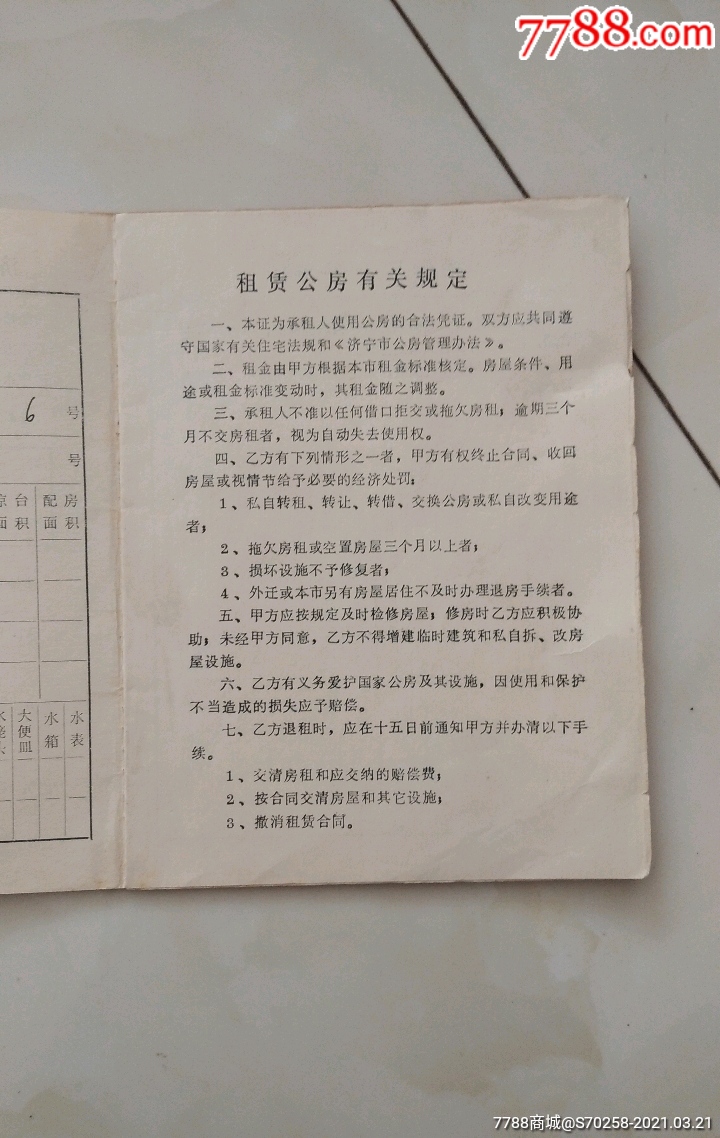 7788.com
租赁公房有关规定
一、本证为承租人使用公房的合法凭证。双方应共同遵
守国家有关住宅法规和《济宁市公房管理办法》。
二、租金由甲方根据本市租金标准核定。房屋条件、用
途或租金标准变动时，其租金随之调整。
三、承租人不准以任何借口拒交或拖欠房租；逾期三个
月不交房租者，视为自动失去使用权。
四、乙方有下列情形之一者，甲方有权终止合同、收回
房屋或视情节给予必要的经济处罚：
1、私自转租、转让、转借、交换公房或私自改变用途
者；
2、拖欠房租或空置房屋三个月以上者；
3、损坏设施不予修复者；
4、外迁或本市另有房屋居住不及时办理退房手续者。
五、甲方应按规定及时检修房屋；修房时乙方应积极协
助；未经甲方同意，乙方不得增建临时建筑和私自拆、改房
屋设施。
六、乙方有义务爱护国家公房及其设施，因使用和保护
不当造成的损失应予赔偿。
七、乙方退租时，应在十五日前通知甲方并办清以下手
续。
1、交清房租和应交纳的赔偿费；
2、按合同交清房屋和其它设施；
3、撤消租赁合同。
6 号
号
台 配房
面积 面积
大便皿
水箱
水表
7788商城@S70258-2021.03.21